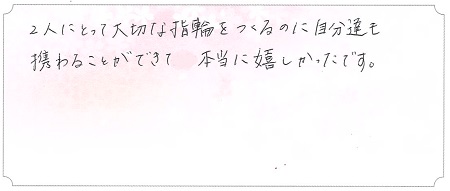 2人にとって大切な指輪をつくるのに自分達も
携わることができて 本当に嬉しかったです。